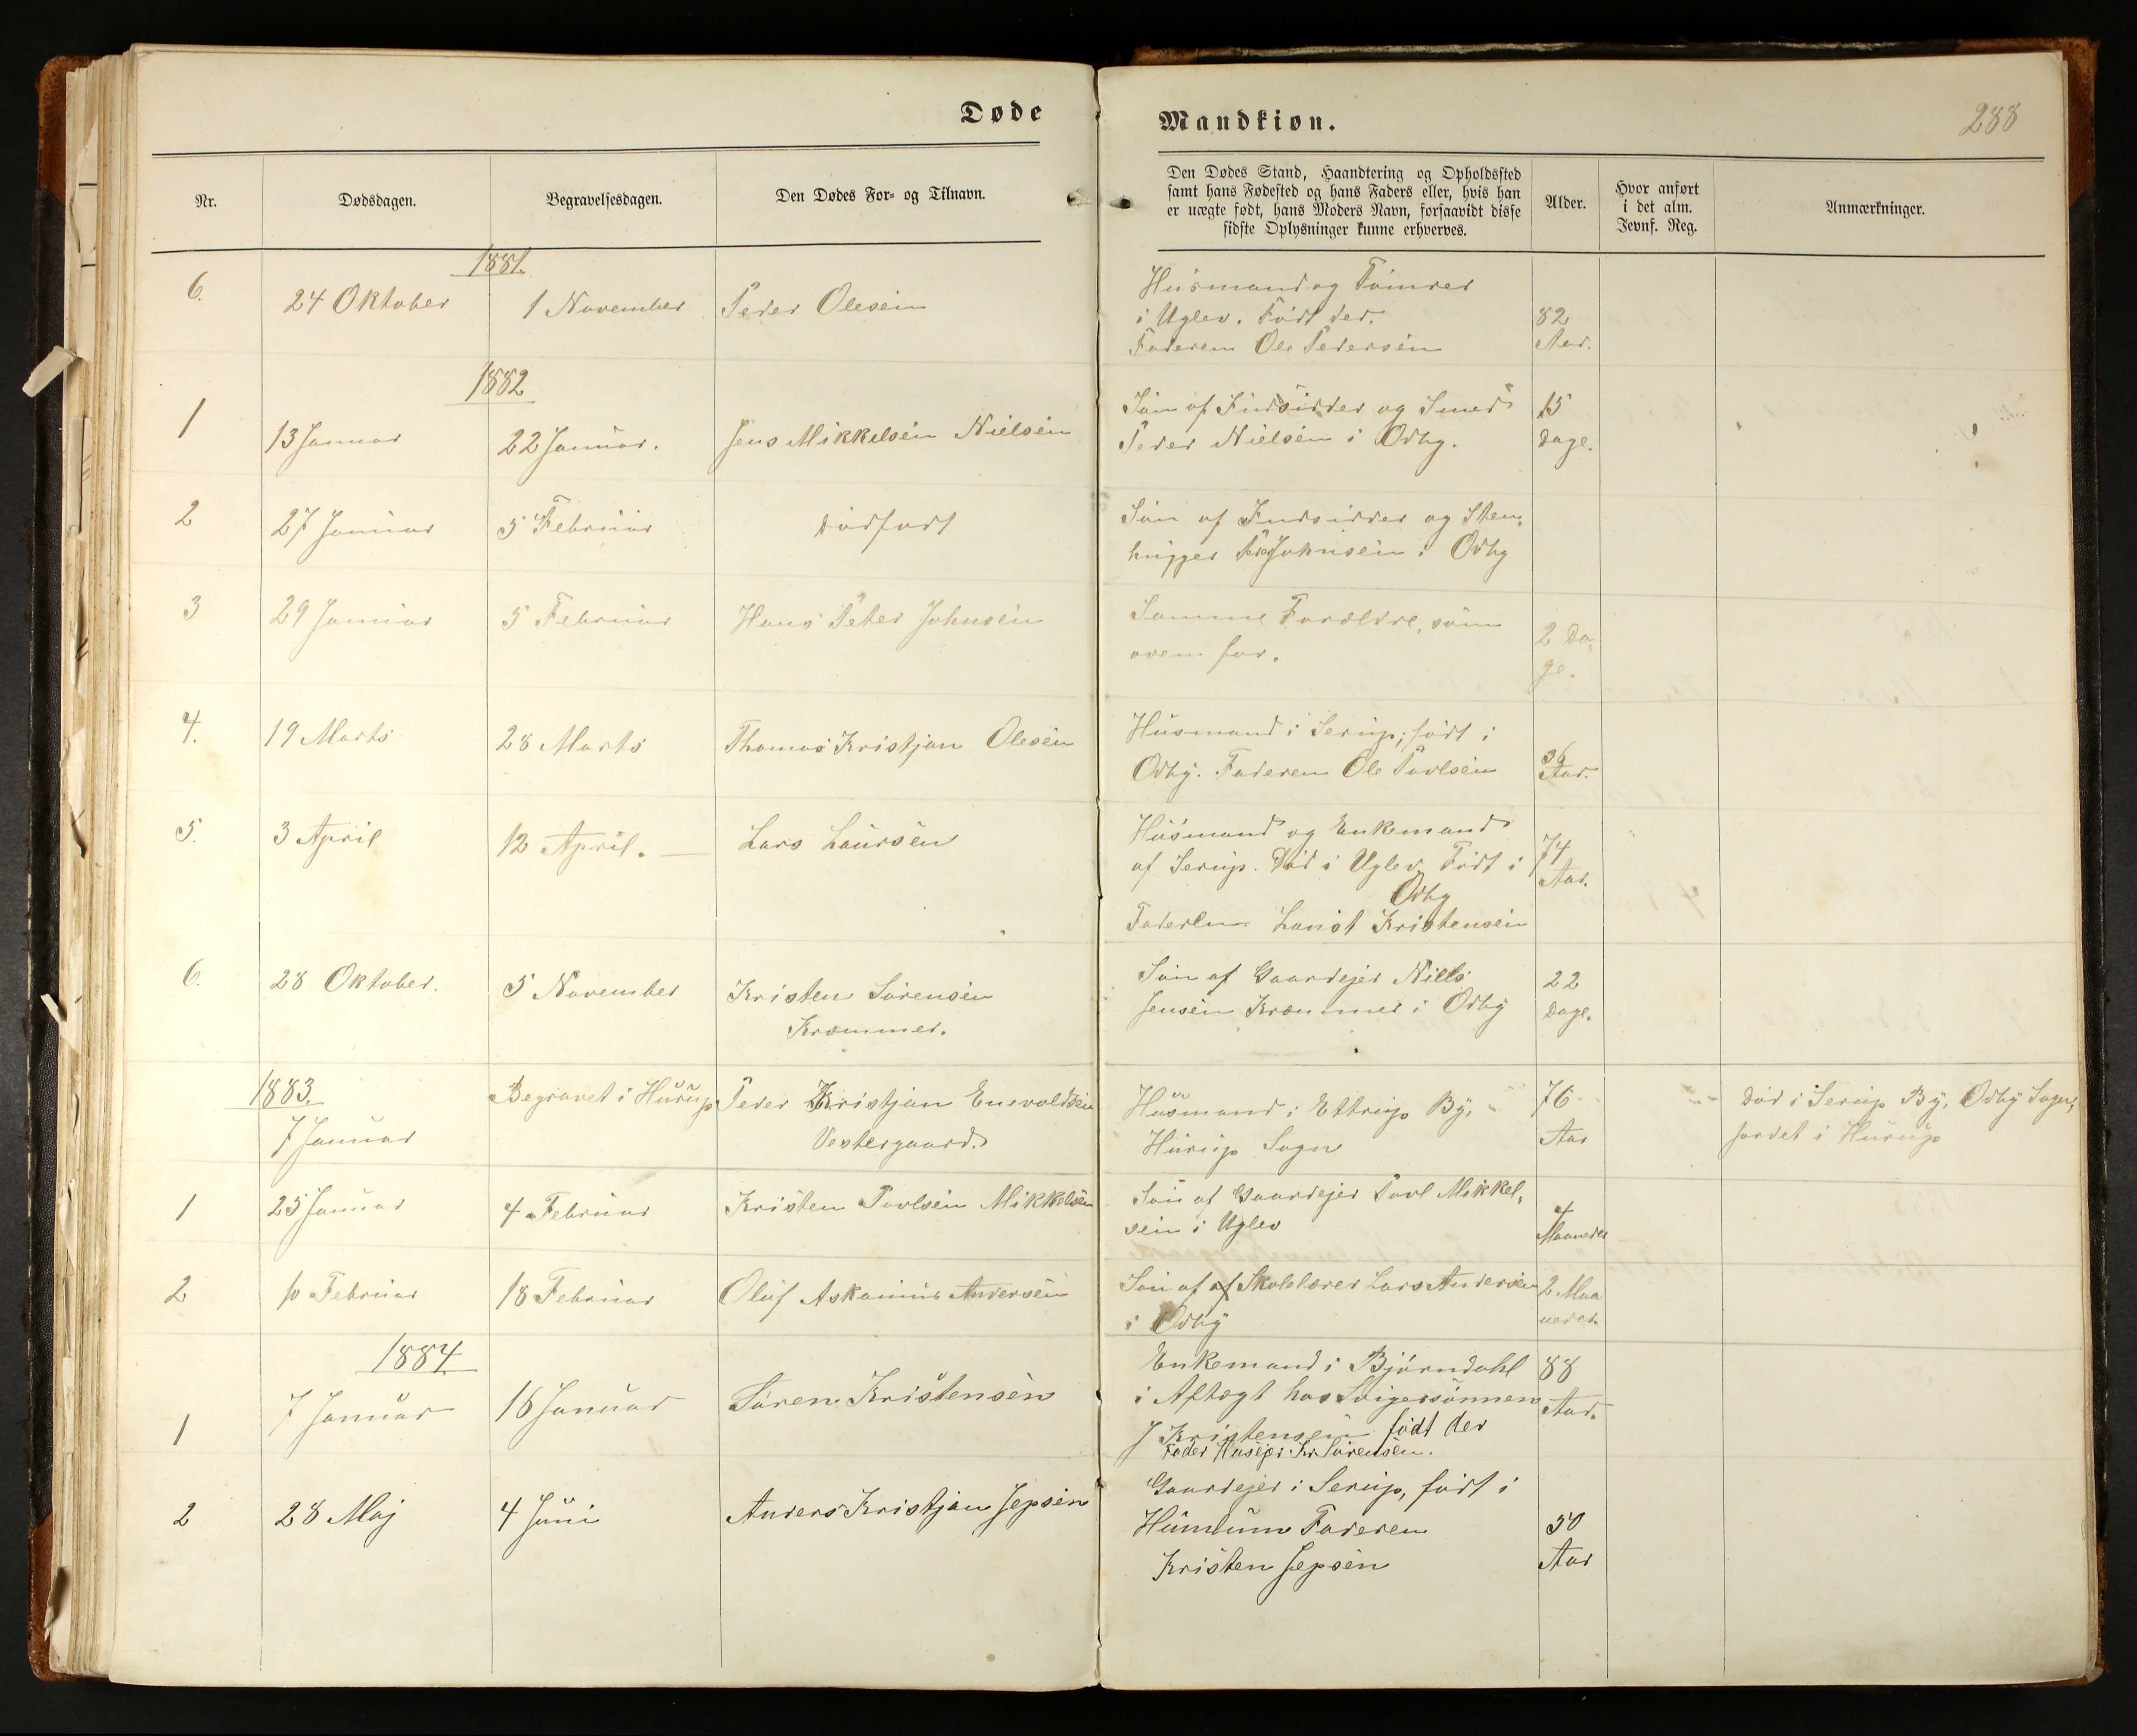 Døde
Mandkiøn.
288
Nr.
Dødsdagen.
Begravelsesdagen.
Den Dødes For- og Tilnavn.
Den Dødes Stand, Haandtering og Opholdssted
samt hans Fødested og hans Faders eller, hvis han
er uægte født, hans Moders Navn, forsaavidt disse
sidste Oplysninger kunne erhverves.
Alder.
Hvor anført
i det alm.
Jevnf. Reg.
Anmærkninger.
1881.
6.
24 Oktober
1 November
Peder Olesen
Husmand og Tømrer
i Uglev. Født der.
Faderen Ole Pedersen
82
Aar.
1882
1
13 Januar
22 Januar.
Jens Mikkelsen Nielsen
Søn af Indsidder og Smed
Peder Nielsen i Odby.
15
Dage.
2
27 Januar
5 Februar
dødfødt
Søn af Indsidder og Sten-
hugger Peder Johnsen i Odby
3
29 Januar
5 Februar
Hans Peter Johnsen
Samme Forældre, som
oven for.
2 Da-
ge.
4.
19 Marts
28 Marts
Thomas Kristjan Olesen
Husmand i Serup; født i
Odby. Faderen Ole Povlsen
36
Aar.
5.
3 April
12 April.
Lars Laursen
Husmand og Enkemand
af Serup. Død i Uglev. Født i
Odby
Faderen Laust Kristensen
74
Aar.
6.
28 Oktober.
5 November
Kristen Sørensen
Kræmmer.
Søn af Gaardejer Niels
Jensen Kræmmer i Odby
22
Dage.
1883.
7 Januar
Begravet i Hurup
Peder Kristjan Enevoldsen
Vestergaard.
Husmand i Ettrup By,
Hurup Sogn
76
Aar
Død i Serup By, Odby Sogn,
jordet i Hurup
1
25 Januar
4 Februar
Kristen Povlsen Mikkelsen
Søn af Gaardejer Povl Mikkel-
sen i Uglev
4
Maaneder
2
10 Februar
18 Februar
Oluf Askanius Andersen
Søn af af Skolelærer Lars Andersen
i Odby
2 Maa
neder
1884.
1
7 Januar
16 Januar
Søren Kristensen
Enkemand i Bjørndahl
i Aftægt hos Svigersønnen
J Kristensen født der
Fader Husejer Kr. Sørensen.
88
Aar.
2
28 Maj
4 Juni
Anders Kristjan Jepsen
Gaardejer i Serup, født i
Humlum Faderen
Kristen Jepsen
50
Aar